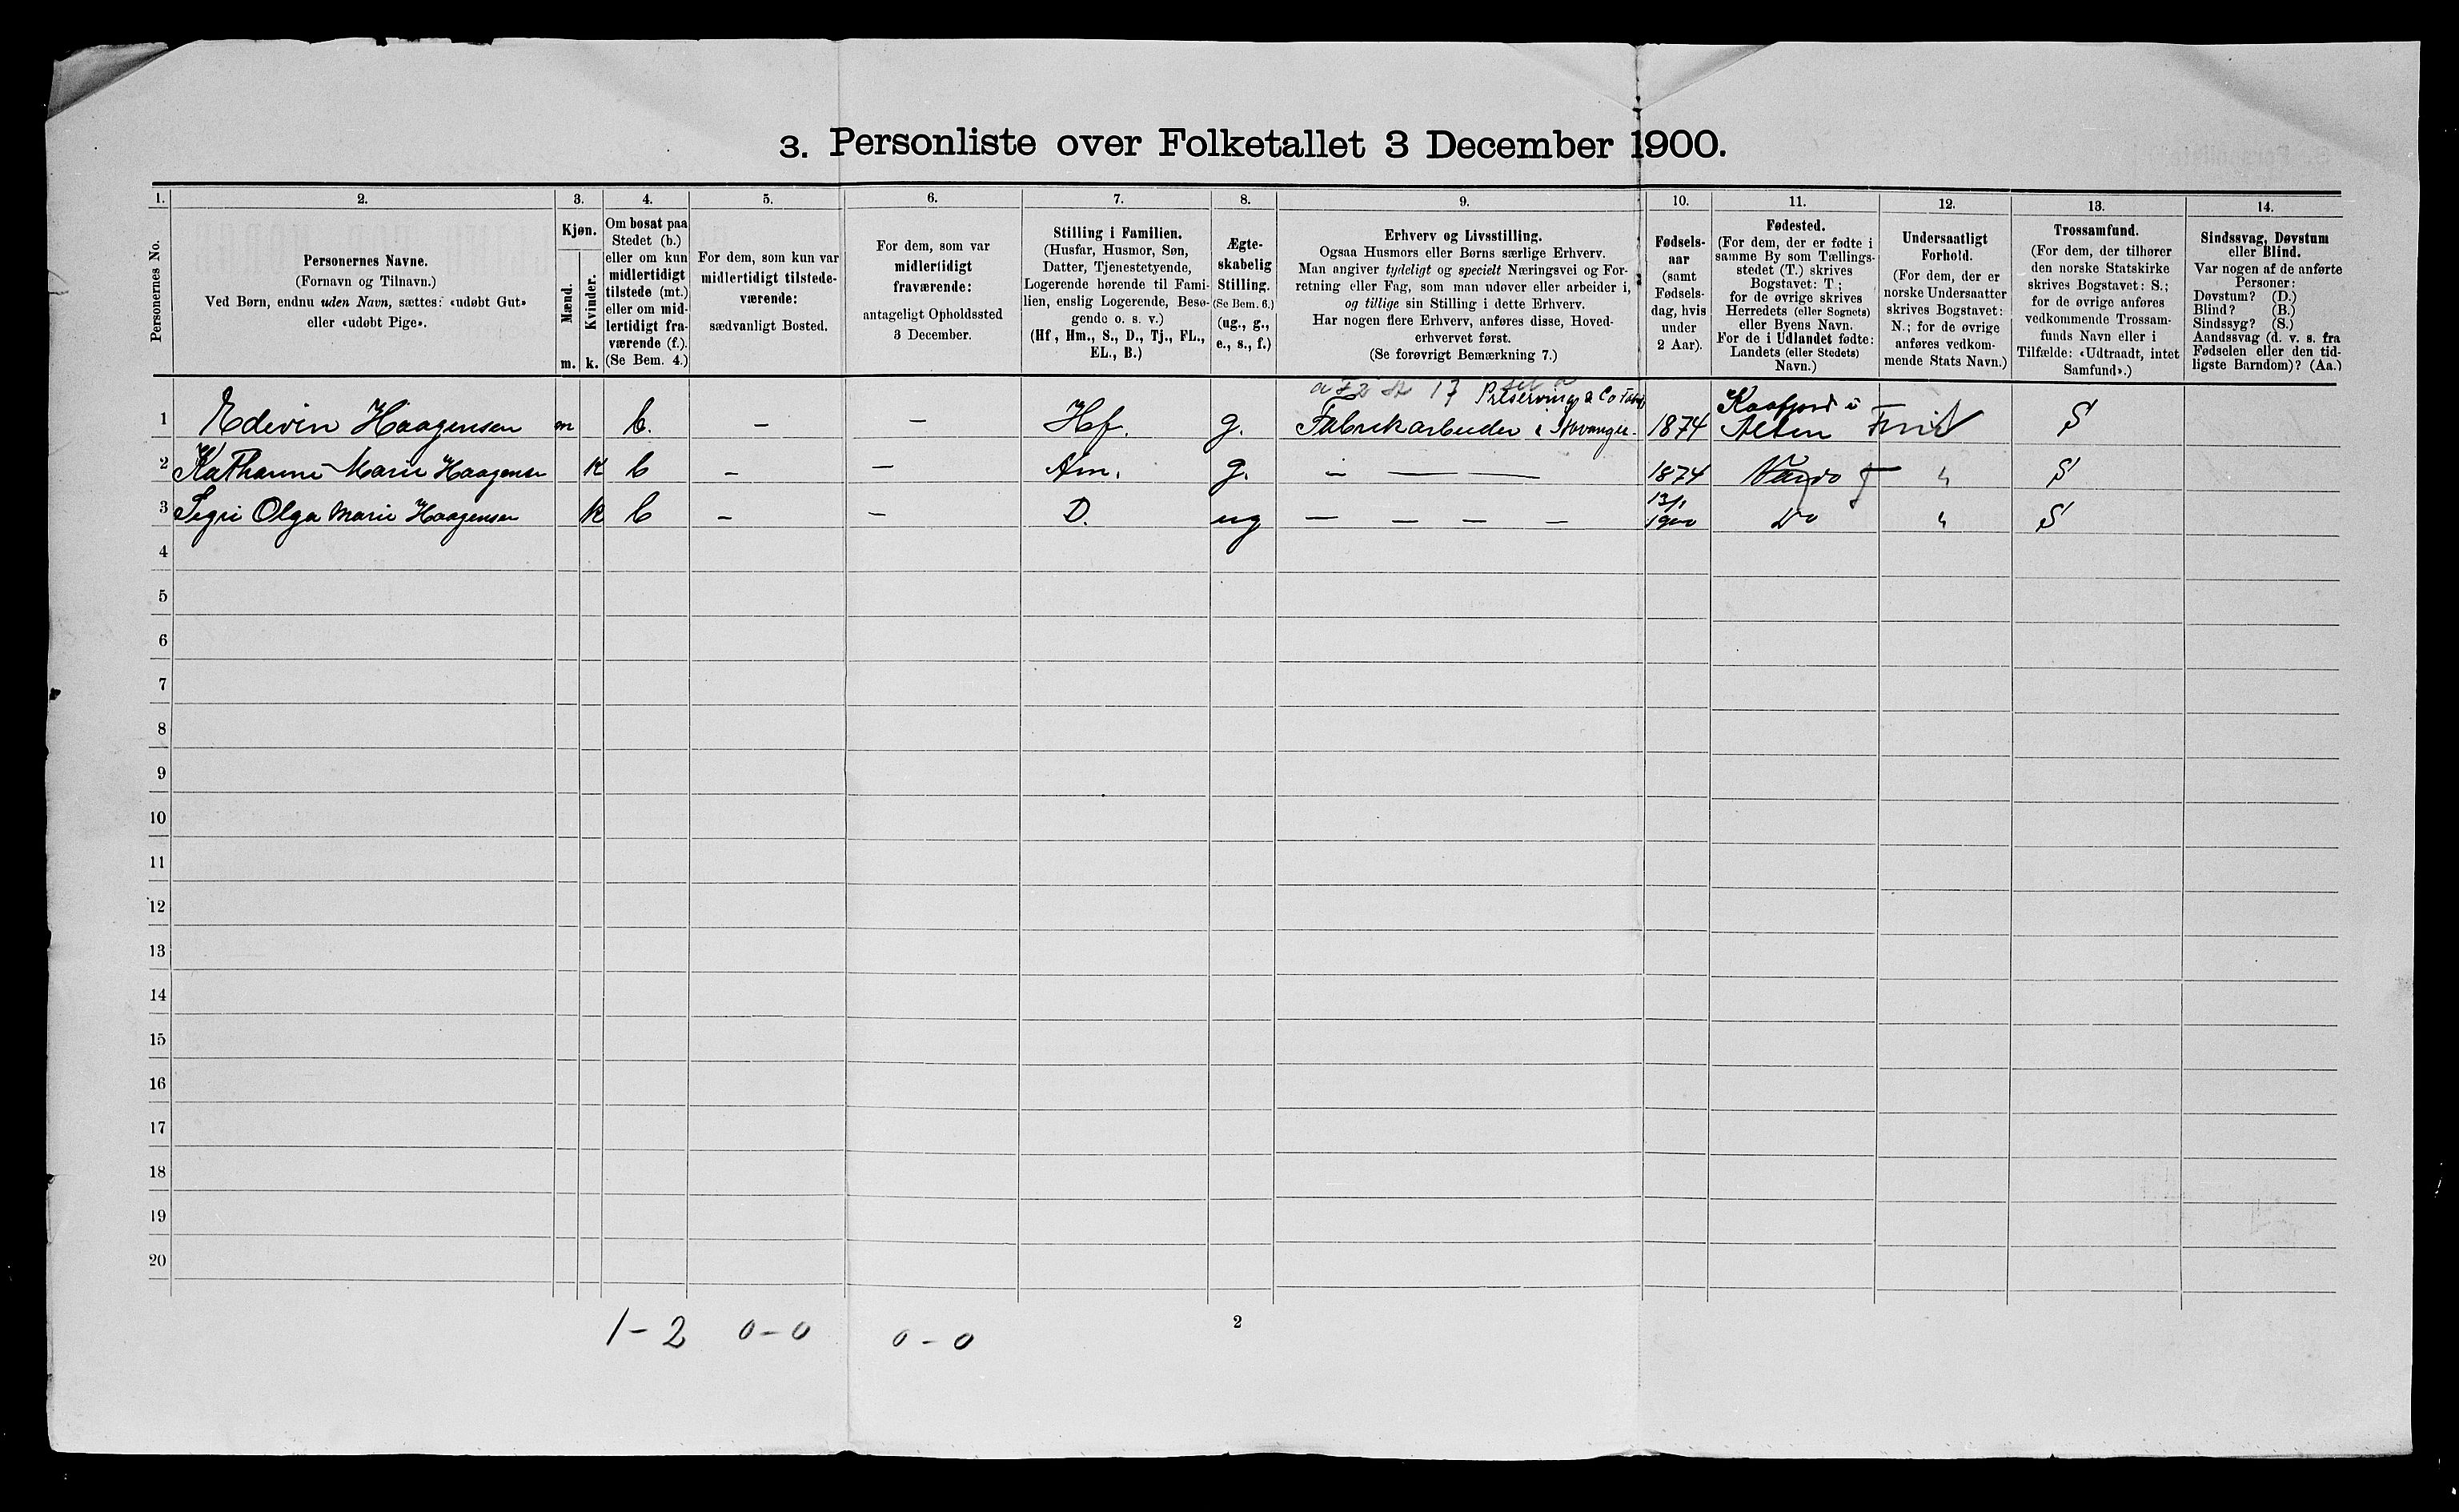 3. Personliste over Folketallet 3 December 1900.
1. 2. 3. 4. 5. 6. 7. 8. 9. 10. 11. 12. 13. 14.
Personernes No.
Personernes Navne.
(Fornavn og Tilnavn.)
Ved Børn, endnu uden Navn, sættes: «udøbt Gut»
eller «udøbt Pige».
Kjøn.
Mænd.
Kvinder.
m. k.
Om bosat paa
Stedet (b.)
eller om kun
midlertidigt
tilstede (mt.)
eller om mid-
lertidigt fra-
værende (f.).
(Se Bem. 4.)
For dem, som kun var
midlertidigt tilstede-
værende:
sædvanligt Bosted.
For dem, som var
midlertidigt
fraværende:
antageligt Opholdssted
3 December.
Stilling i Familien.
(Husfar, Husmor, Søn,
Datter, Tjenestetyende,
Logerende hørende til Fami-
lien, enslig Logerende, Besø-
gende o. s. v.)
(Hf, Hm., S., D., Tj., FL.,
EL., B.)
Ægte-
skabelig
Stilling.
(Se Bem. 6.)
(ug., g.,
e., s., f.)
Erhverv og Livsstilling.
Ogsaa Husmors eller Børns særlige Erhverv.
Man angiver tydeligt og specielt Næringsvei og For-
retning eller Fag, som man udøver eller arbeider i,
og tillige sin Stilling i dette Erhverv.
Har nogen flere Erhverv, anføres disse, Hoved-
erhvervet først.
(Se forøvrigt Bemærkning 7.)
Fødsels-
aar
(samt
Fødsels-
dag, hvis
under
2 Aar).
Fødested.
(For dem, der er fødte i
samme By som Tællings-
stedet (T.) skrives
Bogstavet: T;
for de øvrige skrives
Herredets (eller Sognets)
eller Byens Navn.
For de i Udlandet fødte:
Landets (eller Stedets)
Navn.)
Undersaatligt
Forhold.
(For dem, der er
norske Undersaatter
skrives Bogstavet:
N.; for de øvrige
anføres vedkom-
mende Stats Navn.)
Trossamfund.
(For dem, der tilhører
den norske Statskirke
skrives Bogstavet: S.;
for de øvrige anføres
vedkommende Trossam-
funds Navn eller i
Tilfælde: «Udtraadt, intet
Samfund».)
Sindssvag, Døvstum
eller Blind.
Var nogen af de anførte
Personer:
Døvstum? (D.)
Blind? (B.)
Sindssyg? (S.)
Aandssvag (d. v. s. fra
Fødselen eller den tid-
ligste Barndom)? (Aa.)
Preserving & Co Kaafjord i
1 Edevin Haagensen m b. - - Hf. g. Fabrikarbeider i Stavanger. 1874 Alten S
2 Marie Haagensen k b - - Hm. g. - — — 1874 Vardo " S
13/1
3 Olga Marie Haagensen k b - - D. ug - - - - 1900 Do " S
4
5
6
7
8
9
10
11
12
13
14
15
16
17
18
19
20
1-2 0-0 0-0
2